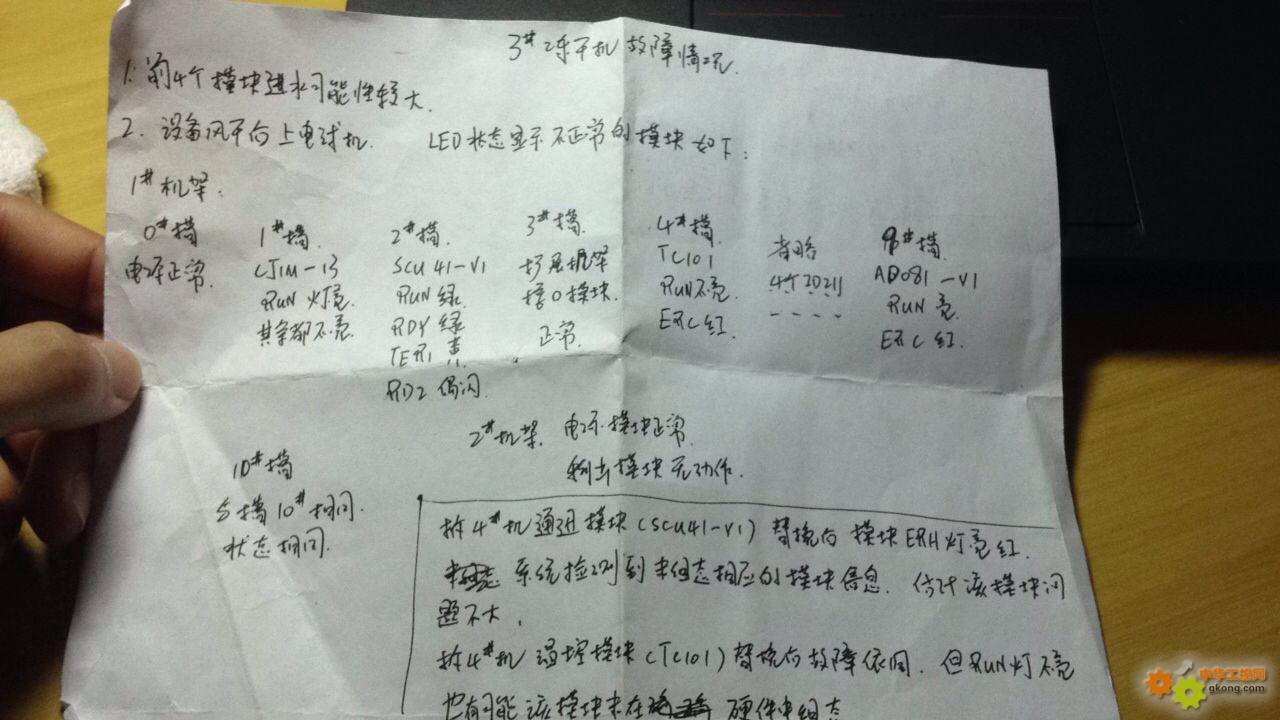 3# 冻干机故障情况
1. 前4个模块进水可能性较大.
2. 设备风干后上电试机. LED状态显示不正常的模块如下:
1#机架:
0#槽 1#槽. 2#槽. 3#槽. 4#槽. 省略 9#槽.
电源正常. CJ1M-13 SCU41-V1 扩展机架 TC101 4个ID211 AD081-V1
RUN灯亮 RUN绿. 接口模块. RUN不亮. - - - - RUN亮.
其余都不亮. RDY绿 正常. ERC红. ERC红.
TER1黄.
RD2偶闪.
2#机架. 电源模块正常.
10#槽 剩余模块无动作.
与槽10#相同.
状态相同.
拆4#机通迅模块(SCU41-V1)替换后模块ERH灯亮红.
系统检测到未组态相应的模块信息. 估计该模块问
题不大.
拆4#机温控模块(TC101)替换后故障依同. 但RUN灯不亮
也有可能该模块未在 硬件中组态
中华工控网
gkong.com